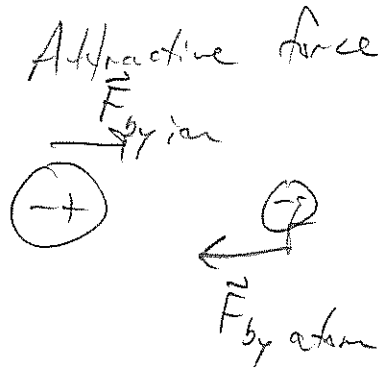 Attractive force
F⃗ by ion
-+
-
F⃗ by atom